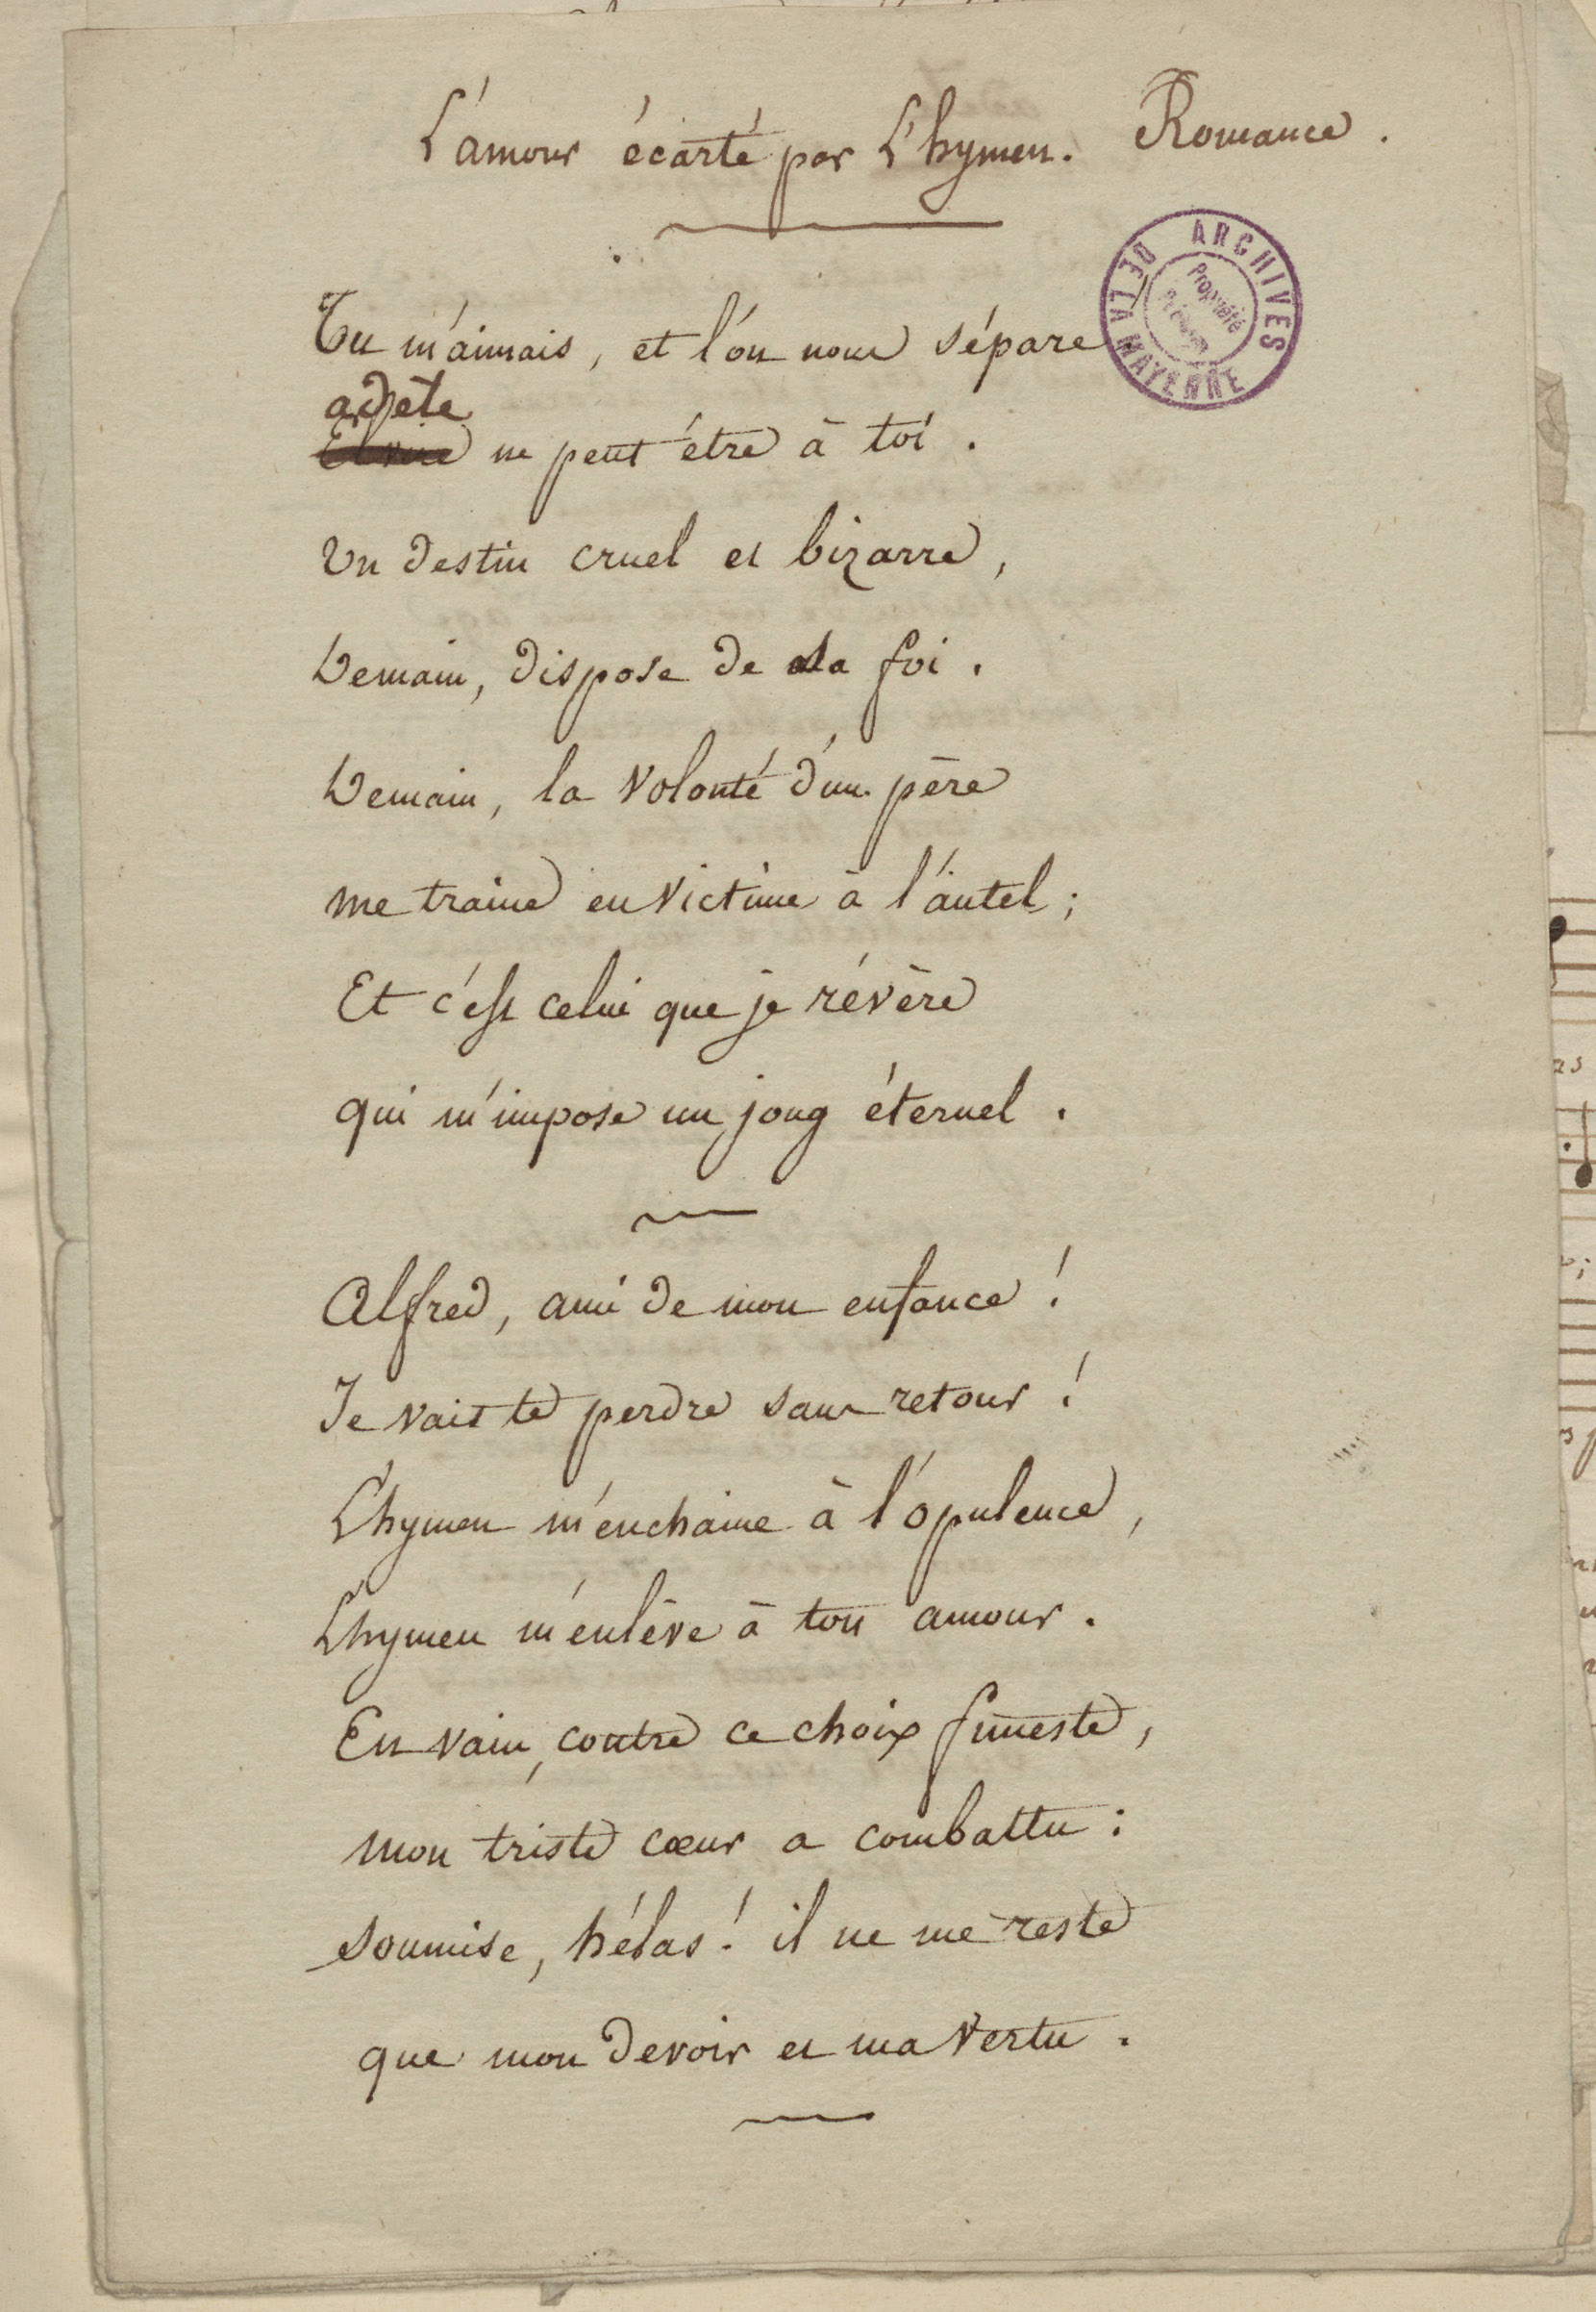 L'amour écarté par L'hymen. Romance.
ARCHIVES DE LA MAYENNE
Propriété
Tu m'aimais, et l'on nous sépare
adèle
Elvire ne peut être à toi.
Un destin cruel et bizarre,
Demain, dispose de sa foi.
Demain, la volonté d'un père
me traine en victime à l'autel;
Et c'est celui que je révère
qui m'impose un joug éternel.
Alfred, ami de mon enfance!
Je vais te perdre sans retour!
L'hymen m'enchaine à l'opulence,
L'hymen m'enlève à ton amour.
En vain, contre ce choix funeste,
mon triste cœur a combattu:
soumise, hélas! il ne me reste
que mon devoir et ma vertu.